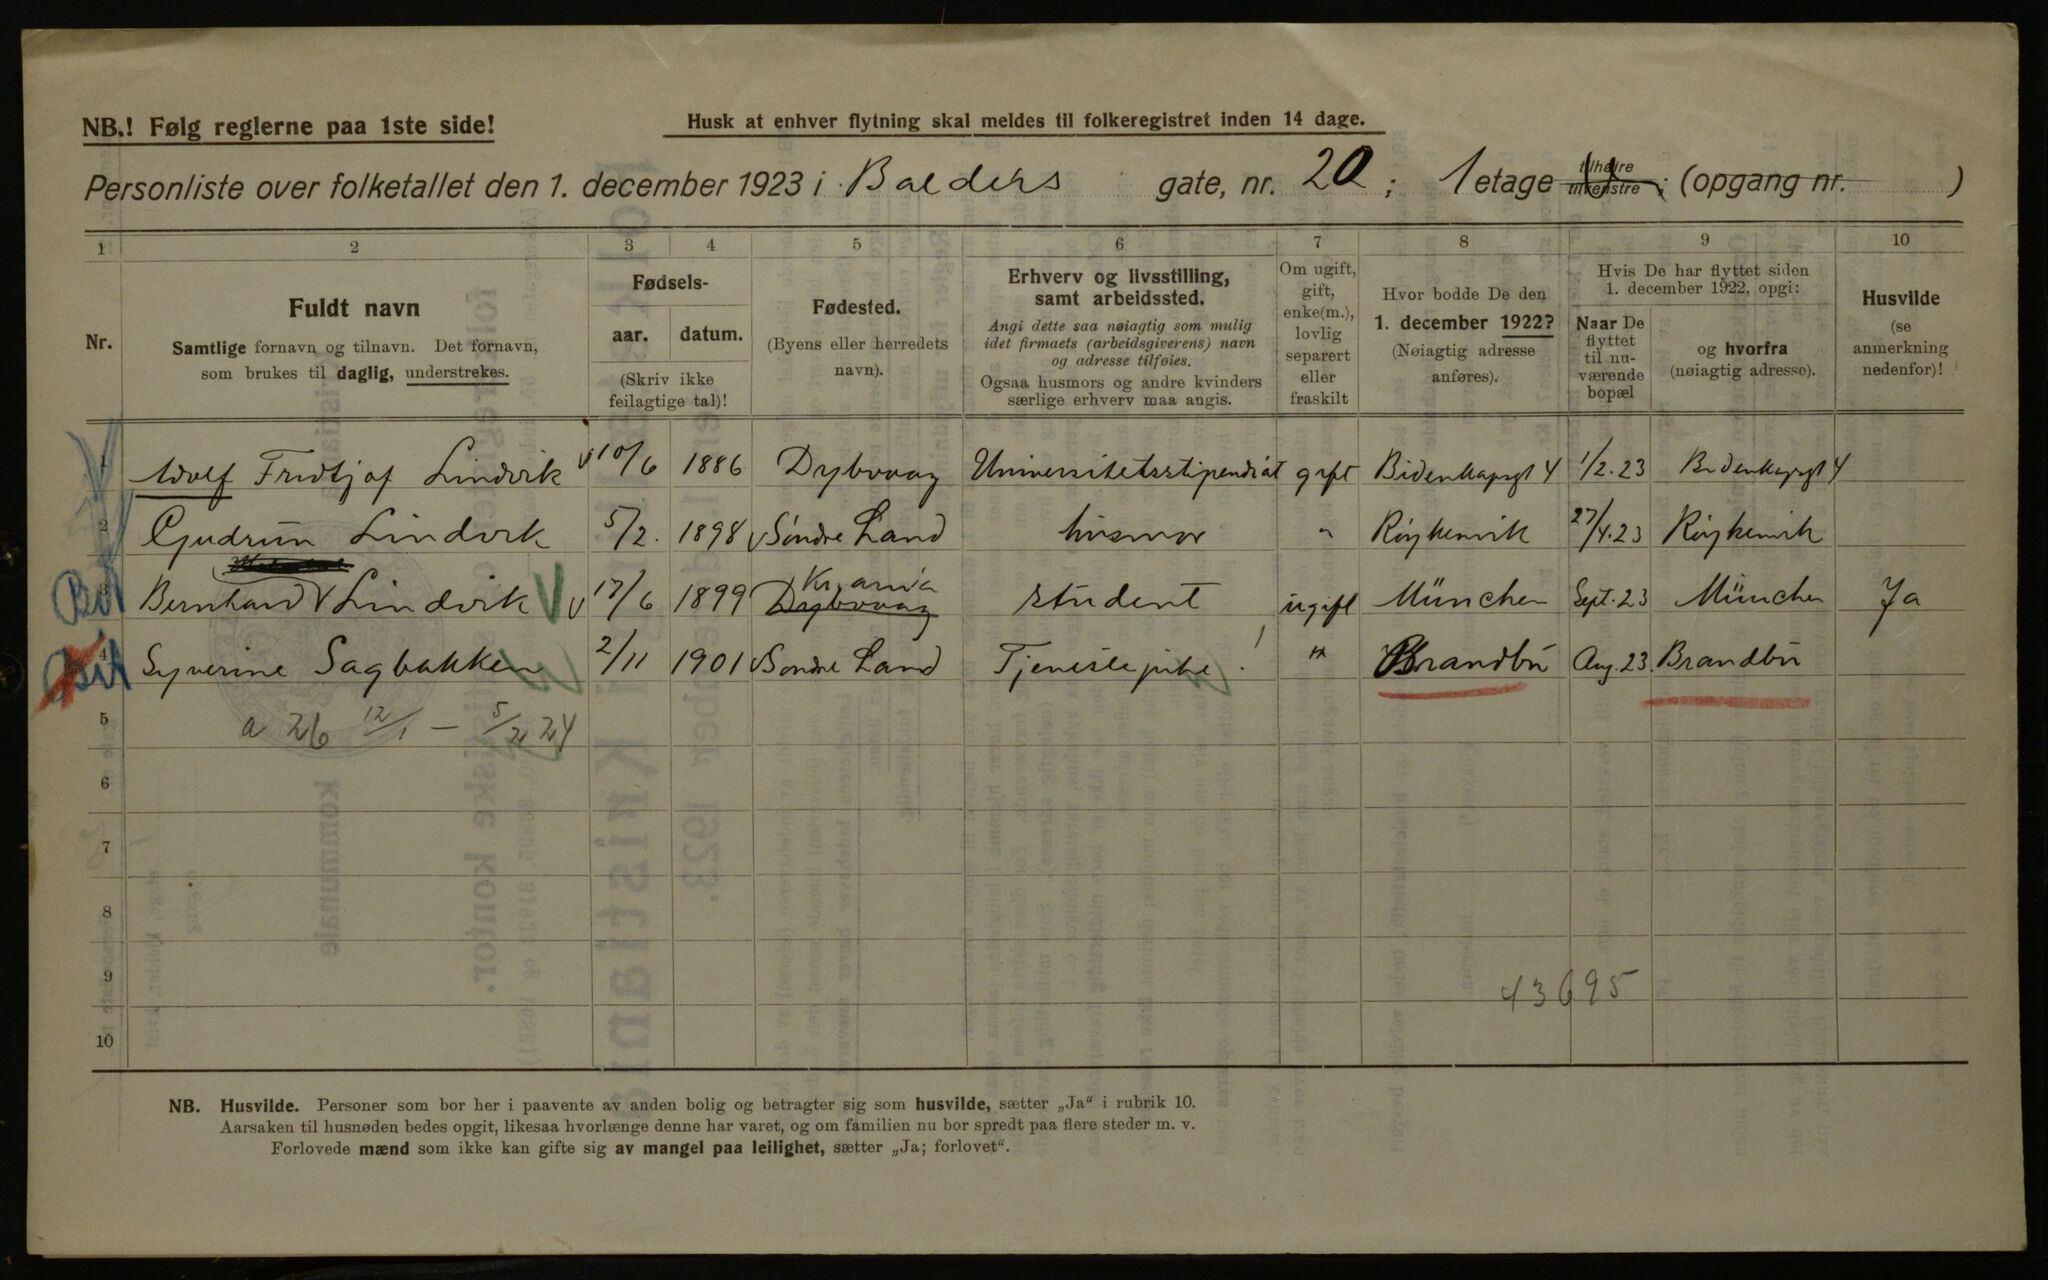 NB.! Følg reglerne paa 1ste side!
Husk at enhver flytning skal meldes til folkeregistret inden 14 dage.
Personliste over folketallet den 1. december 1923 i Balders gate, nr. 20; 1 etage tilhøire tilvenstre; (opgang nr. )
1 2 3 4 5 6 7 8 9 10
Nr.
Fuldt navn
Samtlige fornavn og tilnavn. Det fornavn,
som brukes til daglig, understrekes.
Fødsels-
aar. datum.
(Skriv ikke
feilagtige tal)!
Fødested.
(Byens eller herredets
navn).
Erhverv og livsstilling,
samt arbeidssted.
Angi dette saa nøiagtig som mulig
idet firmaets (arbeidsgiverens) navn
og adresse tilføies.
Ogsaa husmors og andre kvinders
særlige erhverv maa angis.
Om ugift,
gift,
enke(m.),
lovlig
separert
eller
fraskilt
Hvor bodde De den
1. december 1922?
(Nøiagtig adresse
anføres).
Hvis De har flyttet siden
1. december 1922, opgi:
Naar De
flyttet
til nu-
værende
bopæl
og hvorfra
(nøiagtig adresse).
Husvilde
(se
anmerkning
nedenfor)!
1 Adolf Fridtjof Lindvik 10/6 1886 Dybvaag Universitetsstipendiat gift Bidenkapsgt 4 1/2.23 Bidenkapsgt 4
2 Gudrun Lindvik 5/2. 1898 Søndre Land husmor " Røykenvik 27/4.23 Røykenvik
3 Bernhard Lindvik 17/6 1899 Dybvaag Kr.ania student ugift München Sept. 23 München Ja
4 Syverine Sagbakken 2/11 1901 Søndre Land Tjenestepike " Brandbu Aug. 23 Brandbu
5 a 26 12/1 — 5/2 24
6
7
8
9
43695
10
NB. Husvilde. Personer som bor her i paavente av anden bolig og betragter sig som husvilde, sætter „Ja“ i rubrik 10.
Aarsaken til husnøden bedes opgit, likesaa hvorlænge denne har varet, og om familien nu bor spredt paa flere steder m. v.
Forlovede mænd som ikke kan gifte sig av mangel paa leilighet, sætter „Ja; forlovet“.